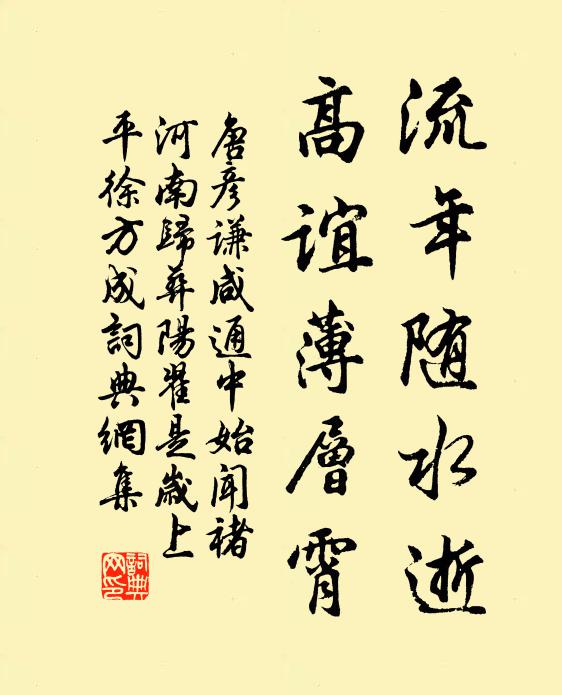 流年随水逝
高誼薄層霄
唐彦謙咸通中始聞褚
河南歸葬陽翟是歲上
平徐方成詞典網集
詞典网印